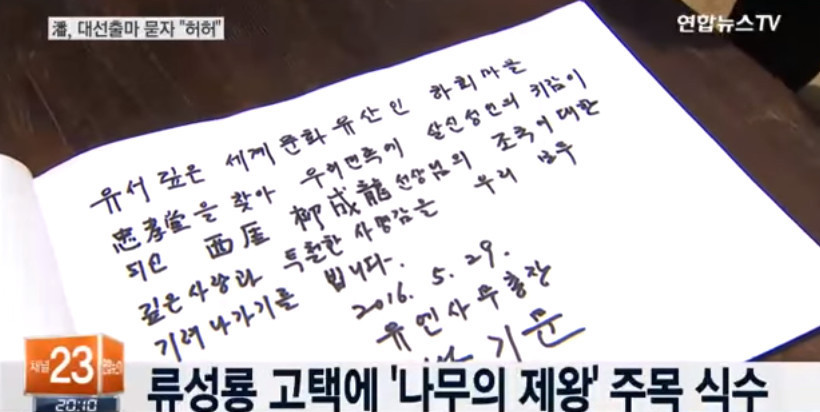 潘, 대선출마 묻자 "허허"
연합뉴스TV
유서 깊은 세계 문화 유산인 하회마을
忠孝堂을 찾아 우리민족에 살신성인의 귀감이
되신 西厓 柳成龍 선생님의 조국에 대한
깊은 사랑과 투철한 사명감을 우리 모두
기려 나가기를 빕니다.
2016. 5. 29.
유엔사무총장
기문
채널 23 연합뉴스TV
20:10
류성룡 고택에 '나무의 제왕' 주목 식수